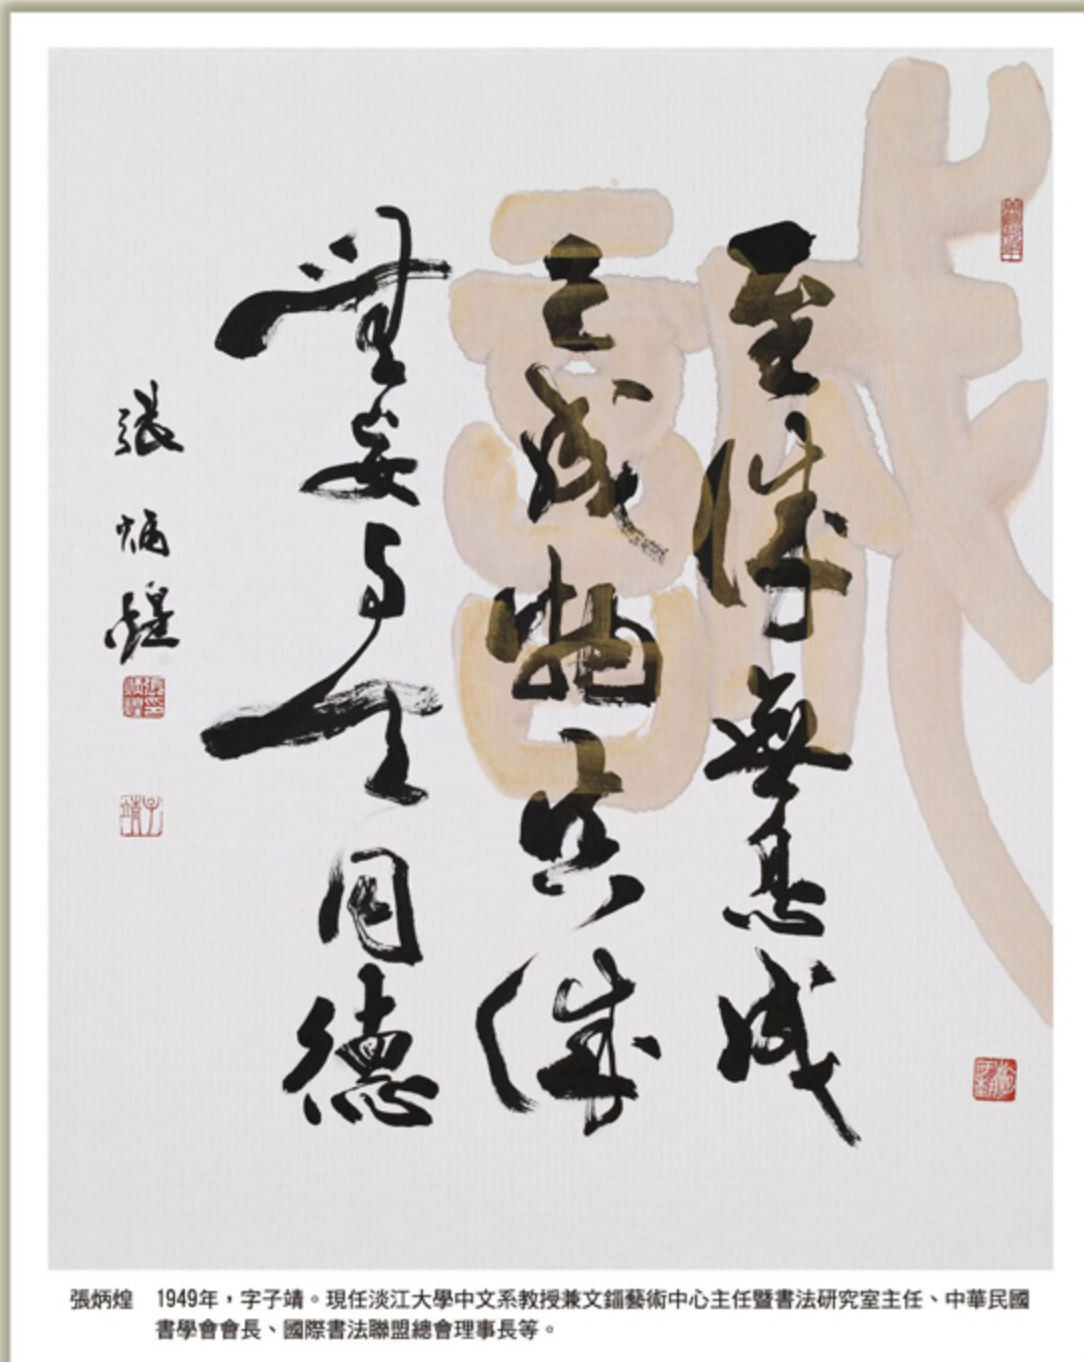 誠
至誠無息成
己成物真誠
無妄与天同德
張炳煌
子靖
張炳煌　1949年，字子靖。現任淡江大學中文系教授兼文錙藝術中心主任暨書法研究室主任、中華民國
書學會會長、國際書法聯盟總會理事長等。